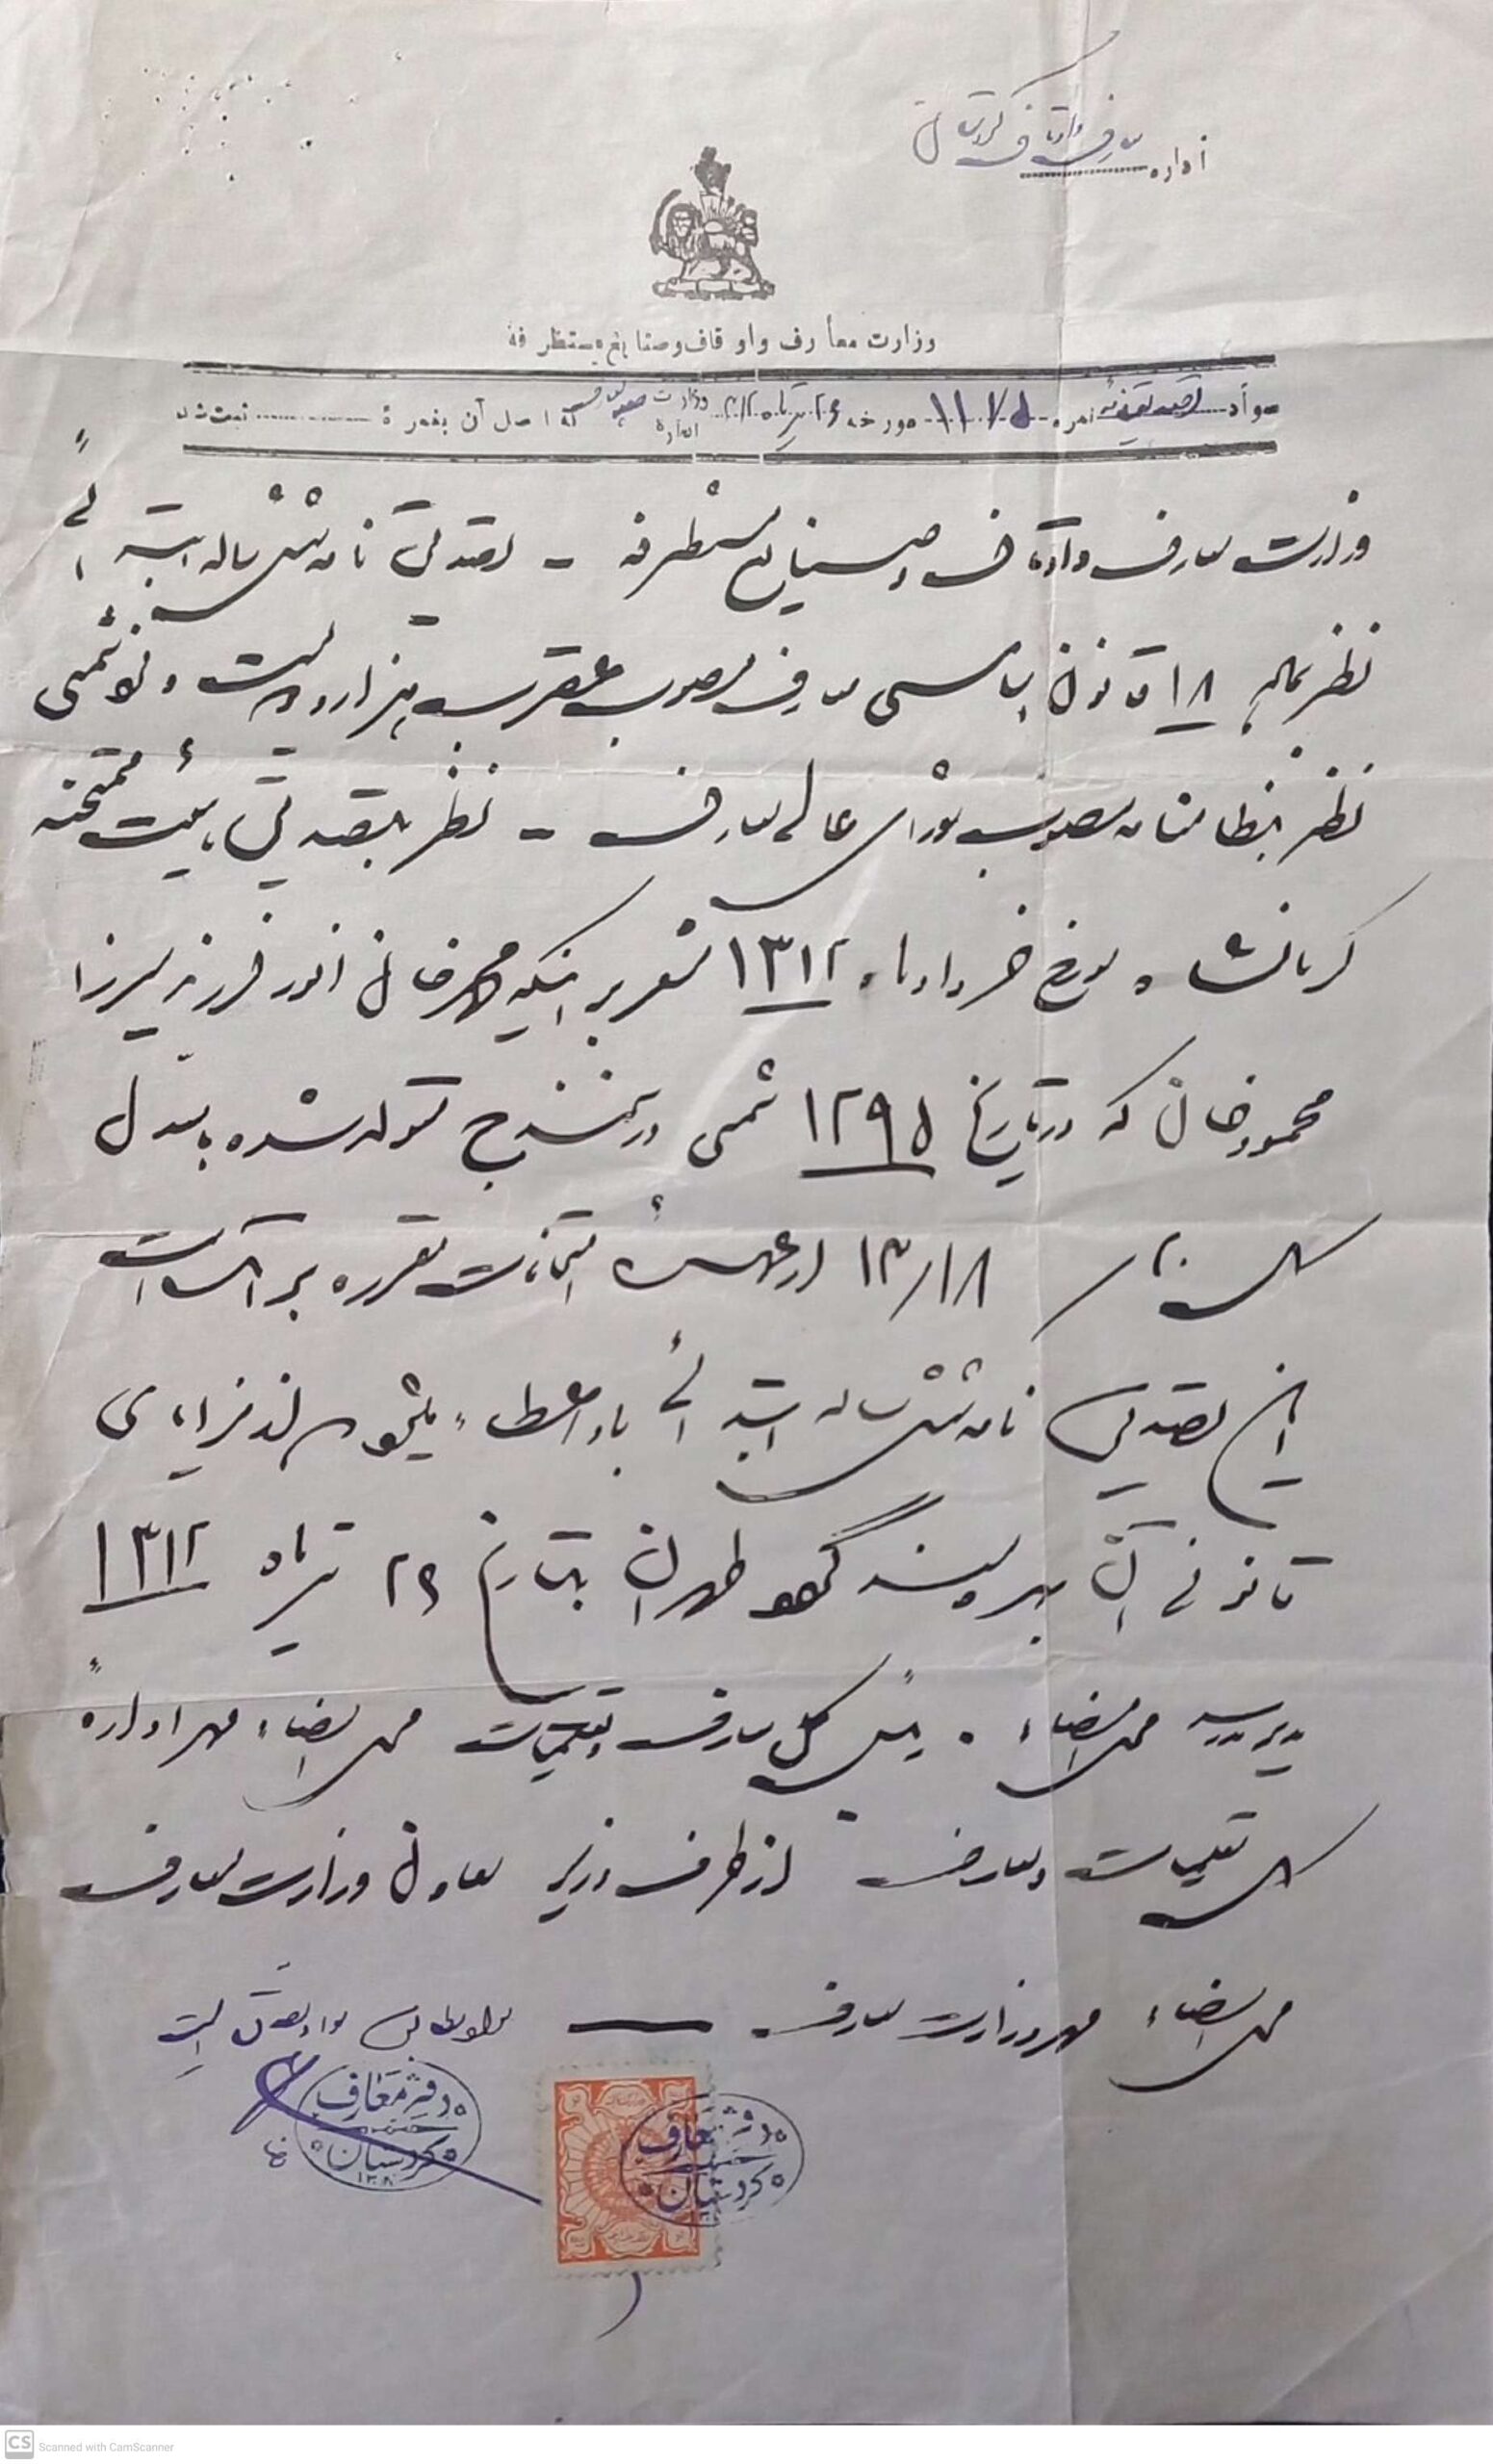 اداره معارف و اوقاف کردستان
وزارت معارف و اوقاف و صنایع مستظرفه
سواد تصدیق نمره ۱۱۷۵ مورخه ۲۶ تیر ماه ۳۱۲ وزارت معارف اداره که اصل آن بنمره ثبت شد
وزارت معارف و اوقاف و صنایع مستظرفه - تصدیق نامه شش ساله ابتدائی
نظر بماده ۱۸ قانون اساسی معارف مصوب عقرب هزار و دویست و نود شمسی
نظر بنظامنامه مصوب شورای عالی معارف - نظر بتصدیق هیئت ممتحنه
کرمانشاه مورخ خرداد ماه ۱۳۱۲ مشعر بر اینکه محمد خان انور فرزند میرزا
محمود خان که در تاریخ ۱۲۹۵ شمسی در سنندج متولد شده با معدل
کل ۱۳/۱۸ از عهده امتحانات مقرره بر آمده است
این تصدیق نامه شش ساله ابتدائی باو اعطاء میشود که از مزایای
قانونی آن بهره مند گردد طهران بتاریخ ۲۶ تیر ماه ۱۳۱۲
مدیر مدرسه محل امضاء . رئیس کل معارف و تعلیمات محل امضاء مهر اداره
کل تعلیمات و معارف از طرف وزیر معاون وزارت معارف
محل امضاء مهر وزارت معارف — سواد مطابق است
دفتر معارف
کردستان
۱۳۰۸
دفتر معارف
کردستان
CS Scanned with CamScanner